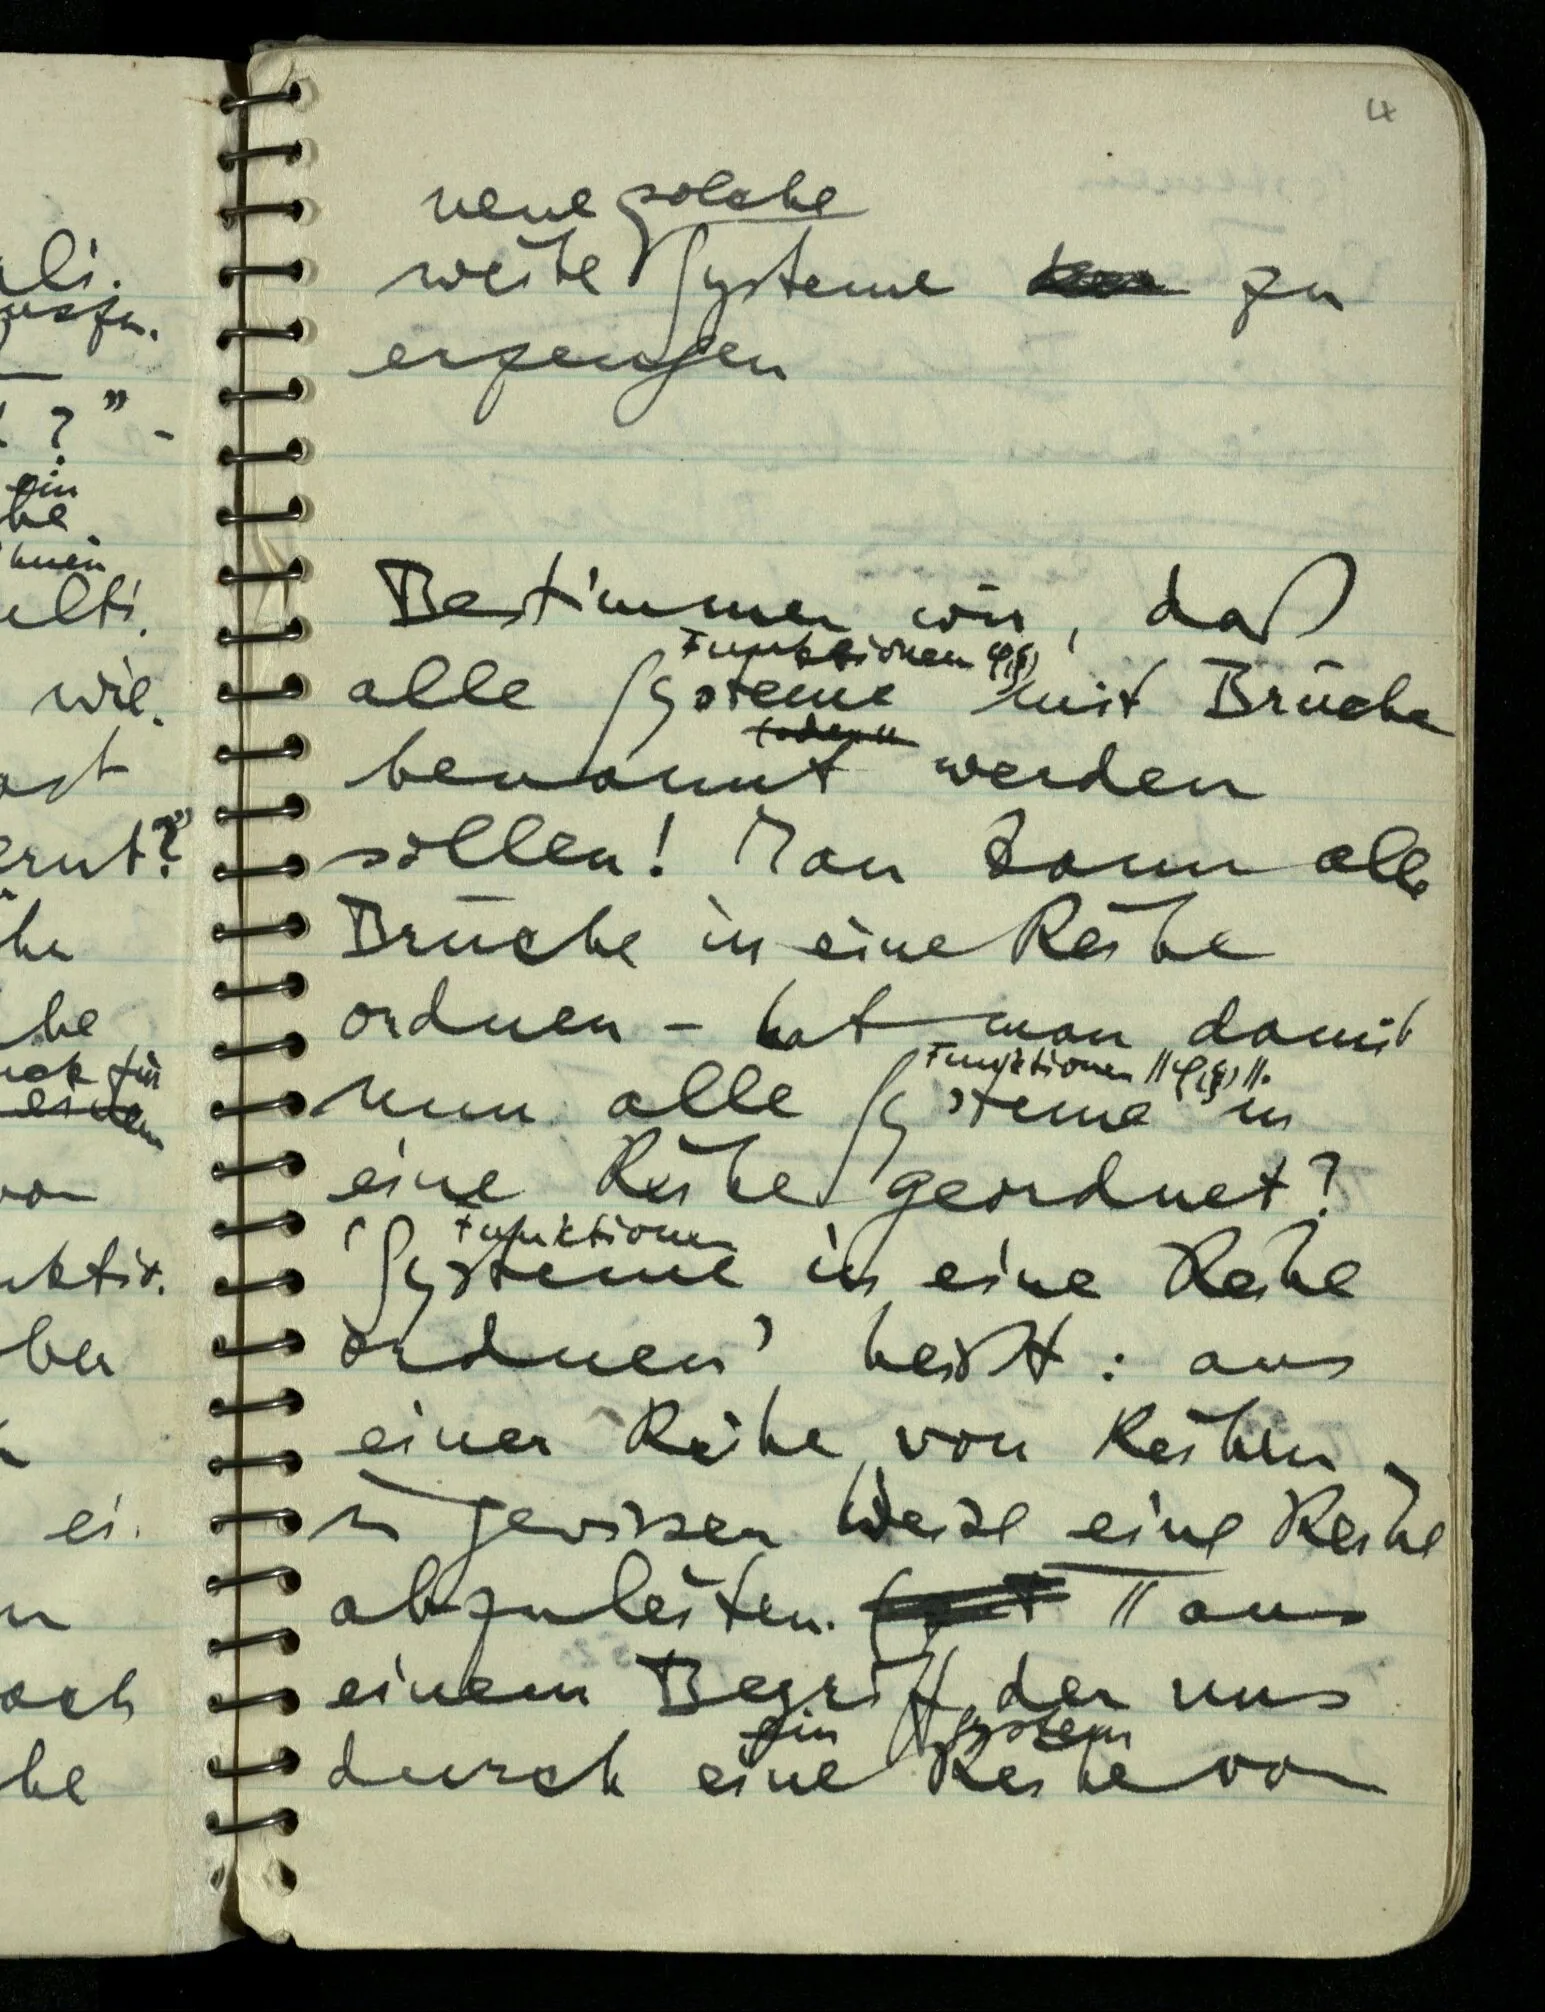 4
neue solche
weite Systeme zu
erzeugen
Bestimmen wir, daß
Funktionen φ(ξ)
alle Systeme mit Brüche
(oder "
benannt werden
sollen! Man kann alle
Brüche in eine Reihe
ordnen – hat man damit
Funktionen "φ(ξ)".
nun alle Systeme in
eine Reihe geordnet?
Funktionen
'Systeme in eine Reihe
ordnen' heißt: aus
einer Reihe von Reihen
in gewissen Weise eine Reihe
abzuleiten. // aus
einem Begriff, der uns
ein System
durch eine Reihe von
ali.
? ” -
ein
he
ihnen
ulti.
wie.
ernt?”
he
ck für
einem
von
nktio.
ber
ei.
och
he